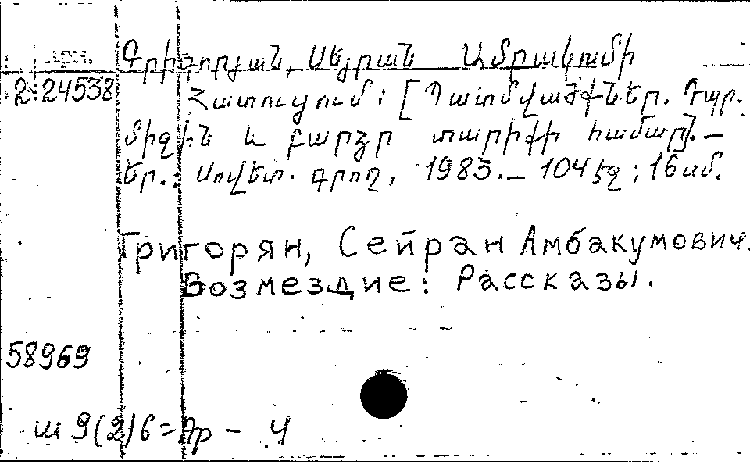 Գրիգորյան, Սեյրան Ամբակումի
2.24538 Հատուցում: [Պատմվածքներ. Դպր.
միջին և բարձր տարիքի համար].–
Եր.: Սովետ. գրող, 1983.– 104 էջ; 16 սմ.
Григорян, Сейран Амбакумович.
Возмездие: Рассказы.
58969
ш 9(2)6=Ар – Ч